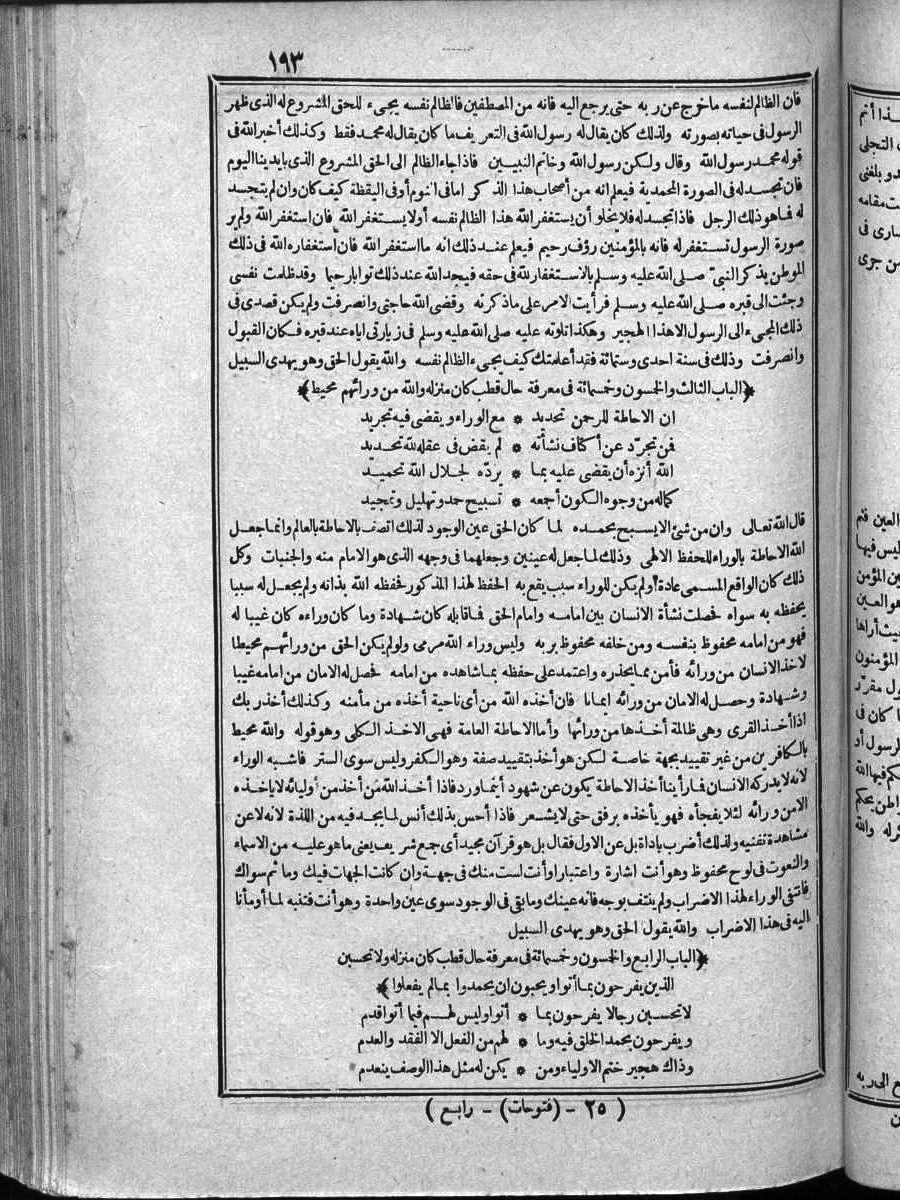 ١٩٣
فان الظالم لنفسه ما خرج عن ربه حتى يرجع اليه فانه من المصطفين فالظالم نفسه يجىء للحق المشروع له الذى ظهر
الرسول فى حياته بصورته ولذلك كان يقال له رسول الله فى التعريف ما كان يقال له محمد فقط وكذلك أخبر الله فى
قوله محمد رسول الله وقال ولكن رسول الله وخاتم النبيين فاذا جاء الظالم الى الحق المشروع الذى بايدينا اليوم
فان تجسد له فى الصورة المحمدية فيعلم انه من أصحاب هذا الذكر اما فى النوم أو فى اليقظة كيف كان وان لم يتجسد
له فما هو ذلك الرجل فاذا تجسد له فلا يخلو أن يستغفر الله هذا الظالم نفسه أولا يستغفر الله فان استغفر الله ولم ير
صورة الرسول تستغفر له فانه بالمؤمنين رؤف رحيم فيعلم عند ذلك انه ما استغفر الله فان استغفاره الله فى ذلك
الموطن يذكر النبىّ صلى الله عليه وسلم بالاستغفار لله فى حقه فيجد الله عند ذلك توابا رحيما وقد ظلمت نفسى
وجئت الى قبره صلى الله عليه وسلم فرأيت الامر على ما ذكرته وقضى الله حاجتى وانصرفت ولم يكن قصدى فى
ذلك المجىء الى الرسول الا هذا الهجير وهكذا تلوته عليه صلى الله عليه وسلم فى زيارتى اياه عند قبره فكان القبول
وانصرفت وذلك فى سنة احدى وستمائة فقد أعلمتك كيف يجىء الظالم نفسه والله يقول الحق وهو يهدى السبيل
﴿الباب الثالث والخمسون وخمسمائة فى معرفة حال قطب كان منزله والله من ورائهم محيط﴾
ان الاحاطة للرحمن تحديد * مع الوراء ويقضى فيه تجريد
فمن تجرّد عن أكناف نشأته * لم يقض فى عقله لله تحديد
الله أنزه أن يقضى عليه بما * يردّه لجلال الله تحميد
كماله من وجوه الكون أجمعه * تسبيح حمد وتهليل وتمجيد
قال الله تعالى وان من شئ الا يسبح بحمده لما كان الحق عين الوجود لذلك اتصف بالاحاطة بالعالم وانما جعل
الله الاحاطة بالوراء للحفظ الالهى وذلك لما جعل له عينين وجعلهما فى وجهه الذى هو الامام منه والجنبات وكل
ذلك كان الواقع المسمى عادة ولم يكن للوراء سبب يقع به الحفظ لهذا المذكور فحفظه الله بذاته ولم يجعل له سببا
يحفظه به سواه فحصلت نشأة الانسان بين امامه وامام الحق فما قابله كان شهادة وما كان وراءه كان غيبا له
فهو من امامه محفوظ بنفسه ومن خلفه محفوظ بربه وليس وراء الله مرمى ولو لم يكن الحق من ورائهم محيطا
لاخذ الانسان من ورائه فأمن مما يحذره واعتمد على حفظه بما شاهده من امامه فحصل له الامان من امامه غيبا
وشهادة وحصل له الامان من ورائه ايمانا فان أخذه الله من أى ناحية أخذه من مأمنه وكذلك أخذ ربك
اذا أخذ القرى وهى ظالمة أخذها من ورائها وأما الاحاطة العامة فهى الاخذ الكلى وهو قوله والله محيط
بالكافرين من غير تقييد بجهة خاصة لكن هو أخذ بتقييد صفة وهو الكفر وليس سوى الستر فاشبه الوراء
لانه لا يدركه الانسان فما رأينا أخذ الاحاطة يكون عن شهود أينما ورد فاذا أخذ الله من أخذ من أوليائه لا يأخذه
الا من ورائه لئلا يفجأه فهو يأخذه برفق حتى لا يشعر فاذا أحس بذلك أنس لما يجد فيه من اللذة لانه لا عن
مشاهدة تفنيه ولذلك أضرب باداة بل عن الاول فقال بل هو قرآن مجيد أى جمع شريف يعنى ما هو عليه من الاسماء
والنعوت فى لوح محفوظ وهو أنت اشارة واعتبارا وأنت لست منك فى جهة وان كانت الجهات فيك وما ثم سواك
فانتفى الوراء لهذا الاضراب ولم ينتف بوجه فانه عينك وما بقى فى الوجود سوى عين واحدة وهو أنت فتنبه لما أومأنا
اليه فى هذا الاضراب والله يقول الحق وهو يهدى السبيل
﴿الباب الرابع والخمسون وخمسمائة فى معرفة حال قطب كان منزله ولا تحسبن
الذين يفرحون بما أتوا ويحبون ان يحمدوا بما لم يفعلوا﴾
لا تحسبن رجالا يفرحون بما * أتوا وليس لهم فيما أتوا قدم
ويفرحون بحمد الخلق فيه وما * لهم من الفعل الا الفقد والعدم
وذاك هجير ختم الاولياء ومن * يكن له مثل هذا الوصف ينعدم
(٢٥ - (فتوحات) - رابع)